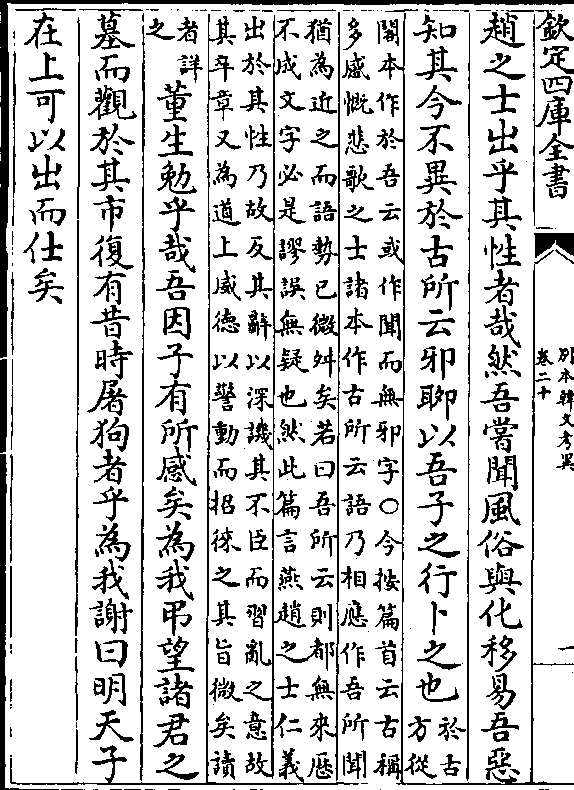 欽定四庫全書
別本韓文考異
卷二十
一
趙之士出乎其性者哉然吾嘗聞風俗與化移易吾惡
知其今不異於古所云邪聊以吾子之行卜之也
於古
方從
閣本作於吾云或作聞而無邪字○今按篇首云古稱
多感慨悲歌之士諸本作古所云語乃相應作吾所聞
猶為近之而語勢已微舛矣若曰吾所云則都無來歴
不成文字必是謬誤無疑也然此篇言燕趙之士仁義
出於其性乃故反其辭以深譏其不臣而習亂之意故
其卒章又為道上威德以警動而招徠之其旨微矣讀
者詳
之
董生勉乎哉吾因子有所感矣為我弔望諸君之
墓而觀於其市復有昔時屠狗者乎為我謝曰明天子
在上可以出而仕矣